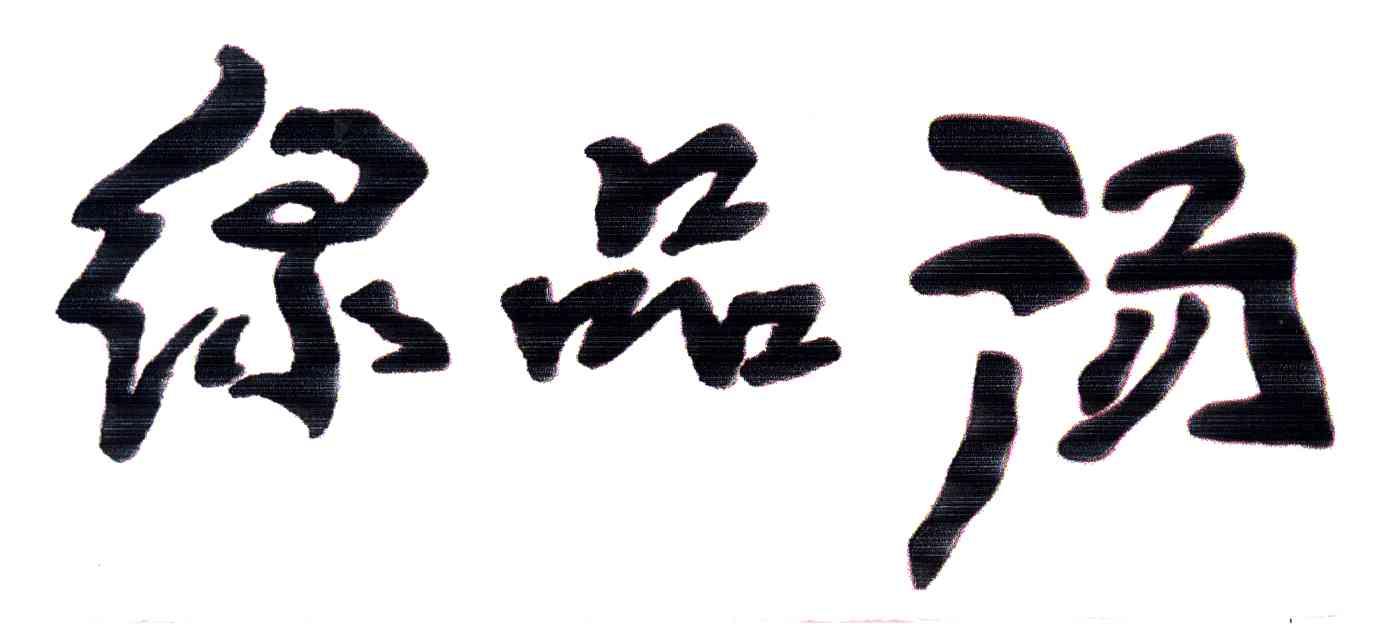 绿品汤